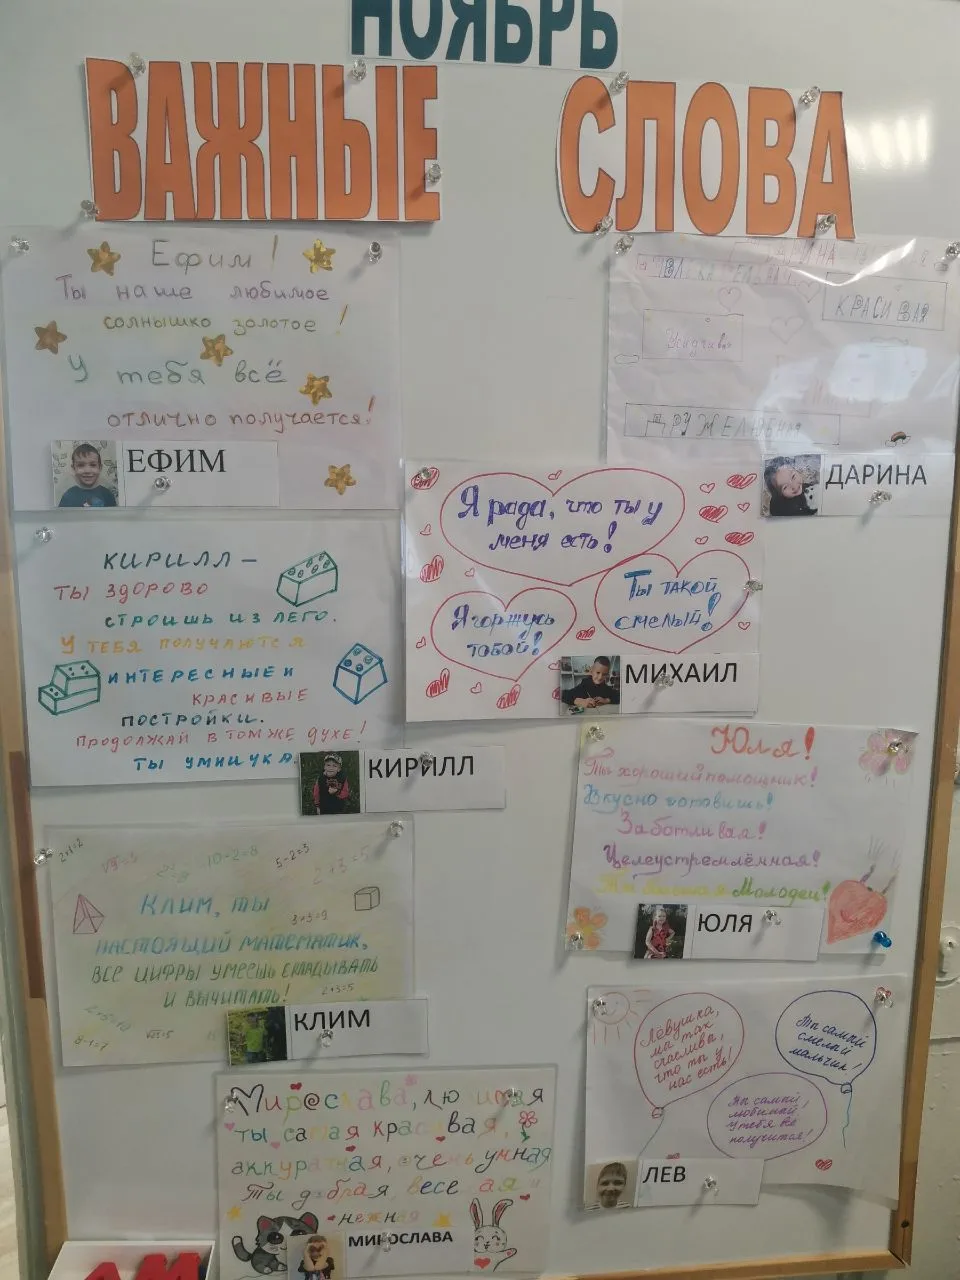 НОЯБРЬ
ВАЖНЫЕ СЛОВА
Ефим!
Ты наше любимое
солнышко золотое!
У тебя всё
отлично получается!
ЕФИМ
ДАРИНА
КРАСИВАЯ
ДРУЖЕЛЮБНАЯ
ДАРИНА
Я рада, что ты у
меня есть!
Я горжусь
тобой!
Ты такой
смелый!
МИХАИЛ
КИРИЛЛ –
ТЫ ЗДОРОВО
СТРОИШЬ ИЗ ЛЕГО.
У ТЕБЯ ПОЛУЧАЮТСЯ
ИНТЕРЕСНЫЕ И
КРАСИВЫЕ
ПОСТРОЙКИ.
ПРОДОЛЖАЙ В ТОМ ЖЕ ДУХЕ!
ТЫ УМНИЧКА
КИРИЛЛ
Юля!
Ты хороший помощник!
Вкусно готовишь!
Заботливая!
Целеустремлённая!
Ты большая Молодец!
ЮЛЯ
2+1=2
√9=3
10-2=8
5-2=3
2+3=5
Клим, ты
3×3=9
настоящий математик,
все цифры умеешь складывать
и вычитать!
2+3=5
8-1=7
КЛИМ
Лёвушка,
мы так
счастливы,
что ты у
нас есть!
Ты самый
смелый
мальчик!
Ты самый
любимый,
у тебя всё
получится!
ЛЕВ
Мирослава, любимая
ты самая красивая,
аккуратная, очень умная
Ты добрая, веселая и
нежная
МИРОСЛАВА